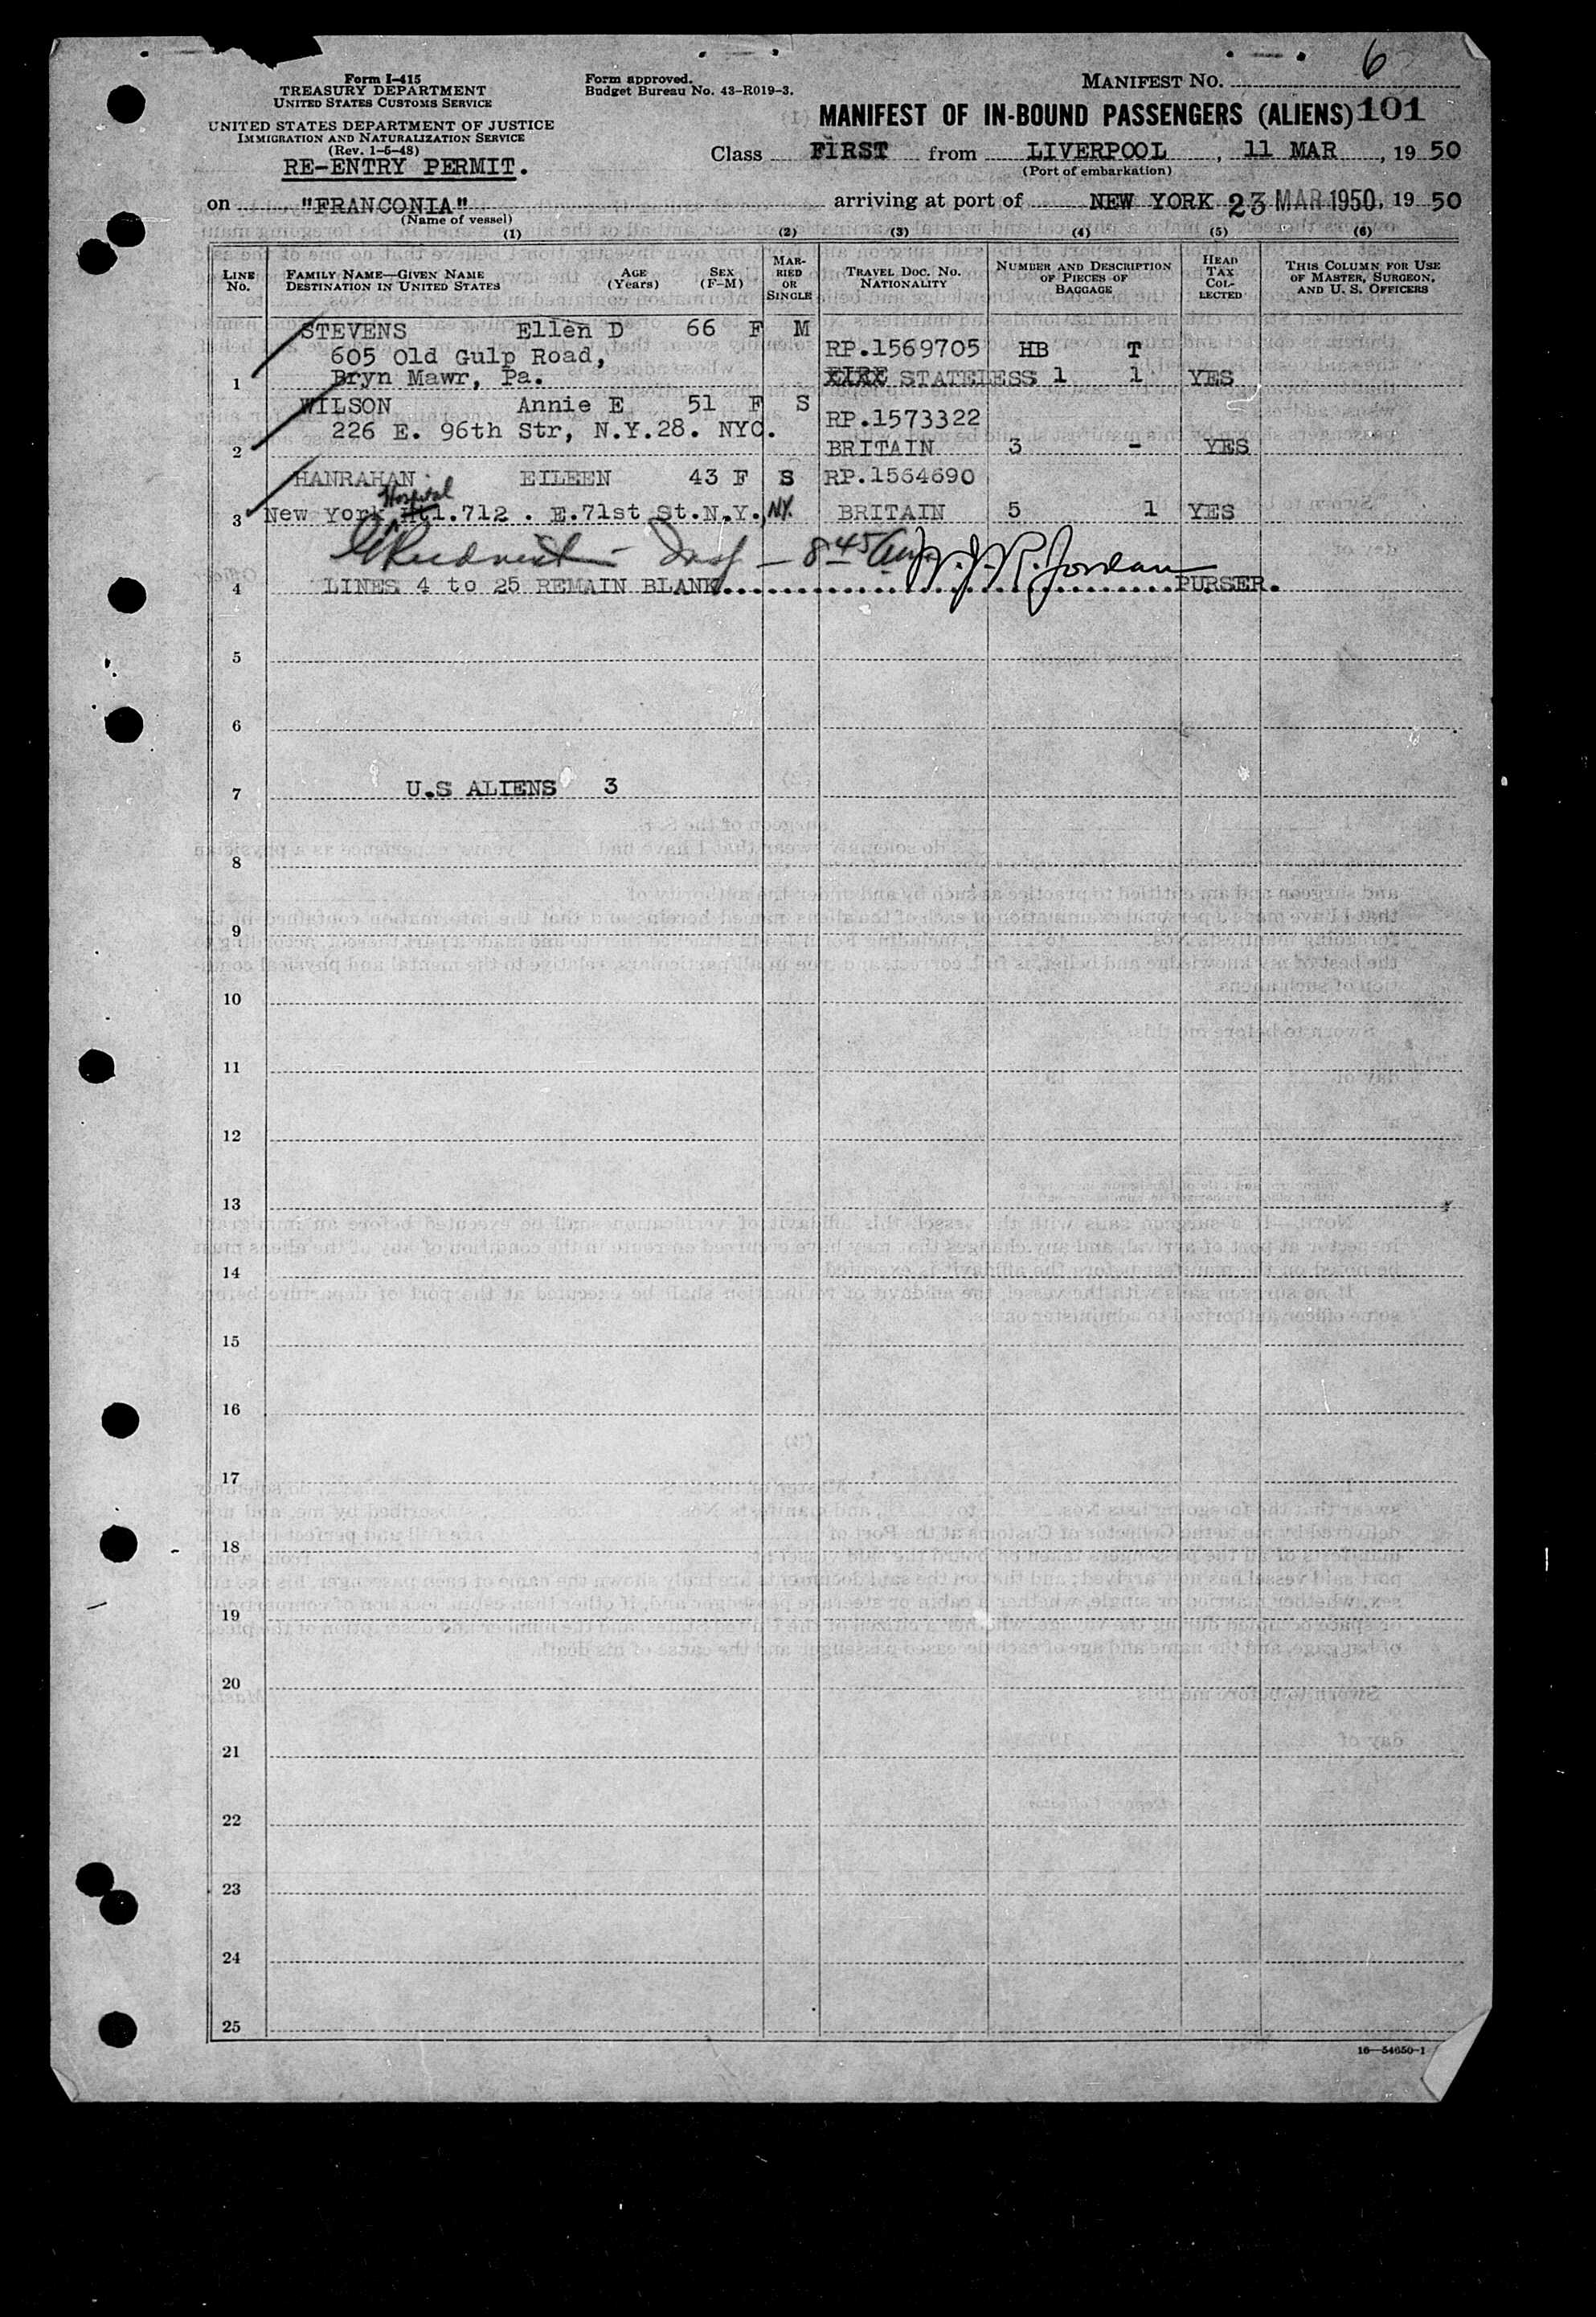 6
Form I-415
TREASURY DEPARTMENT
UNITED STATES CUSTOMS SERVICE
UNITED STATES DEPARTMENT OF JUSTICE
IMMIGRATION AND NATURALIZATION SERVICE
(Rev. 1-6-48)
RE-ENTRY PERMIT.
Form approved.
Budget Bureau No. 43-R019-3.
MANIFEST NO.
MANIFEST OF IN-BOUND PASSENGERS (ALIENS) 101
Class FIRST from LIVERPOOL, 11 MAR, 19 50
(Port of embarkation)
on "FRANCONIA" arriving at port of NEW YORK 23 MAR 1950, 19 50
(Name of vessel)
(1) (2) (3) (4) (5) (6)
LINE No. FAMILY NAME—GIVEN NAME DESTINATION IN UNITED STATES AGE (Years) SEX (F-M) MARRIED OR SINGLE TRAVEL DOC. NO. NATIONALITY NUMBER AND DESCRIPTION OF PIECES OF BAGGAGE HEAD TAX COLLECTED THIS COLUMN FOR USE OF MASTER, SURGEON, AND U. S. OFFICERS
STEVENS Ellen D 66 F M
605 Old Gulp Road, RP.1569705 HB T
1 Bryn Mawr, Pa. STATELESS 1 1 YES
WILSON Annie E 51 F S
226 E. 96th Str, N.Y.28. NYC. RP.1573322
2 BRITAIN 3 - YES
HANRAHAN EILEEN 43 F S RP.1564690
Hospital
3 New York Htl.712 . E.71st St.N.Y., NY. BRITAIN 5 1 YES
Insp — 8 45 Am W. J. R. Jordan
4 LINES 4 to 25 REMAIN BLANK PURSER.
5
6
7 U.S ALIENS 3
8
9
10
11
12
13
14
15
16
17
18
19
20
21
22
23
24
25
16—54650-1